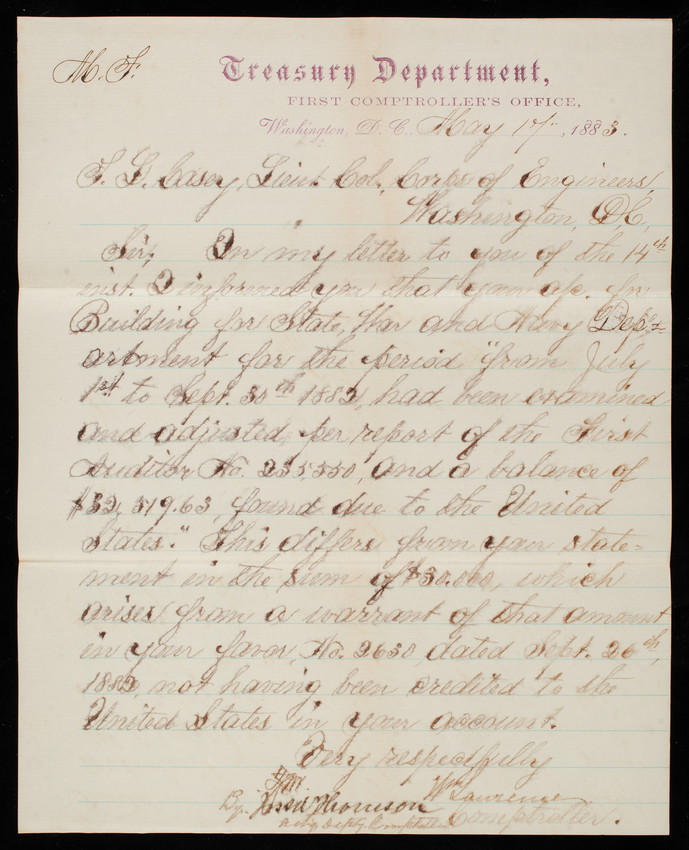 M. F.
Treasury Department,
FIRST COMPTROLLER'S OFFICE,
Washington, D. C., May 17", 1883.
T. L. Casey, Lieut. Col., Corps of Engineers,
Washington, D.C.,
Sir, In my letter to you of the 14th
inst. I informed you that your a/c. for
Building for State, War and Navy Dep-
artment for the period "from July
1st to Sept. 30th 1882, had been examined
and adjusted, per report of the First
Auditor No. 235,550, and a balance of
$32,519.63, found due to the United
States." This differs from your state-
ment in the sum of $30,000, which
arises from a warrant of that amount
in your favor, No. 2630, dated Sept. 26th,
1882, not having been credited to the
United States in your account.
Very respectfully
Wm Lawrence
By. Thomson
Acting Depty. Comptroller Comptroller.